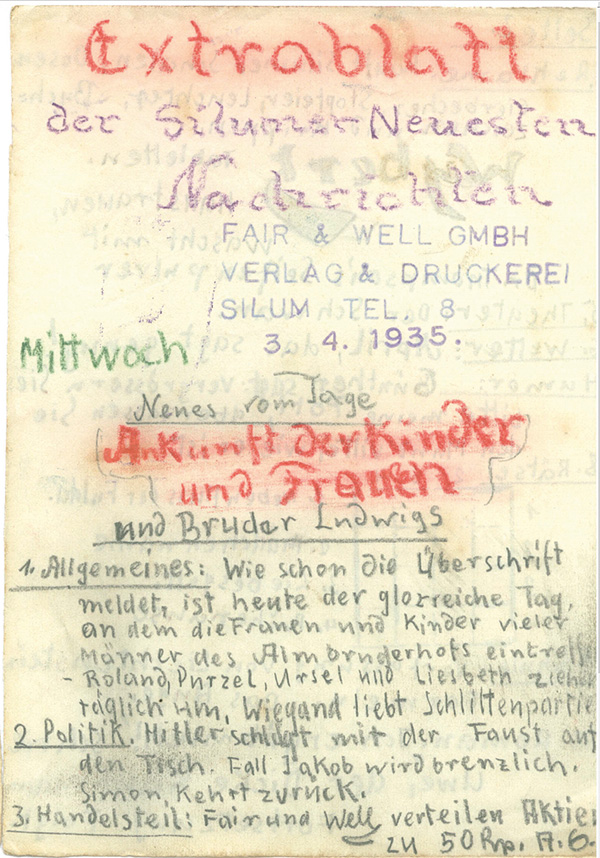 Extrablatt
der Silumer Neuesten
Nachrichten
FAIR & WELL GMBH
VERLAG & DRUCKEREI
SILUM TEL. 8
3. 4. 1935.
Mittwoch
Neues vom Tage
Ankunft der Kinder
und Frauen
und Bruder Ludwigs
1. Allgemeines: Wie schon die Überschrift
meldet, ist heute der glorreiche Tag,
an dem die Frauen und Kinder vieler
Männer des Almbruderhofs eintreffe
- Roland, Purzel, Ursel und Liesbeth ziehen
täglich um, Wiegand liebt Schlittenpartie
2. Politik. Hitler schlägt mit der Faust auf
den Tisch. Fall Jakob wird brenzlich.
Simon kehrt zurück.
3. Handelsteil: Fair und Well verteilen Aktien
zu 50 Rp. A.G.